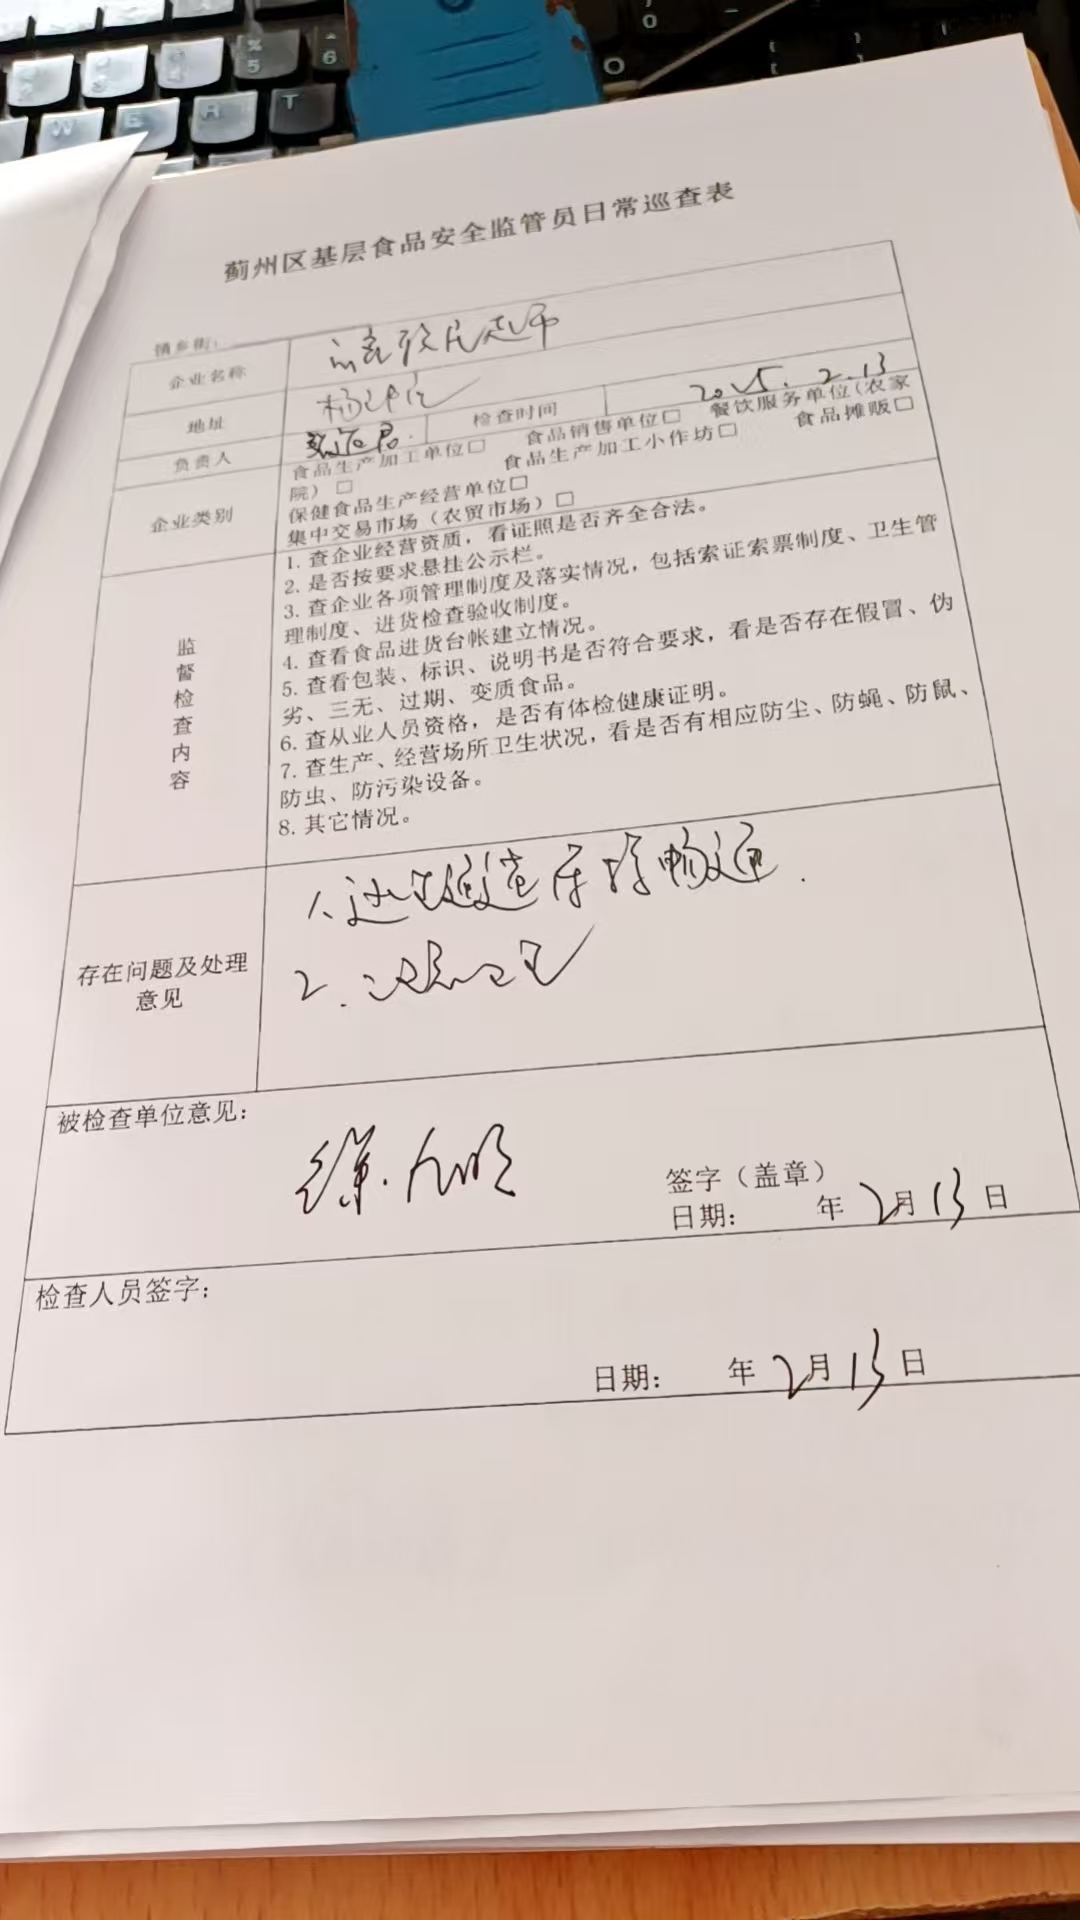 蓟州区基层食品安全监管员日常巡查表
镇乡街：
企业名称
地址
负责人 检查时间 2025.2.13
企业类别
食品生产加工单位□ 食品销售单位□ 餐饮服务单位(农家
院）□ 食品生产加工小作坊□ 食品摊贩□
保健食品生产经营单位□
集中交易市场（农贸市场）□
监督检查内容
1. 查企业经营资质，看证照是否齐全合法。
2. 是否按要求悬挂公示栏。
3. 查企业各项管理制度及落实情况，包括索证索票制度、卫生管
理制度、进货检查验收制度。
4. 查看食品进货台帐建立情况。
5. 查看包装、标识、说明书是否符合要求，看是否存在假冒、伪
劣、三无、过期、变质食品。
6. 查从业人员资格，是否有体检健康证明。
7. 查生产、经营场所卫生状况，看是否有相应防尘、防蝇、防鼠、
防虫、防污染设备。
8. 其它情况。
存在问题及处理
意见
1、通道保持畅通.
2.
被检查单位意见：
签字（盖章）
日期： 年 2月13日
检查人员签字：
日期： 年 2月13日